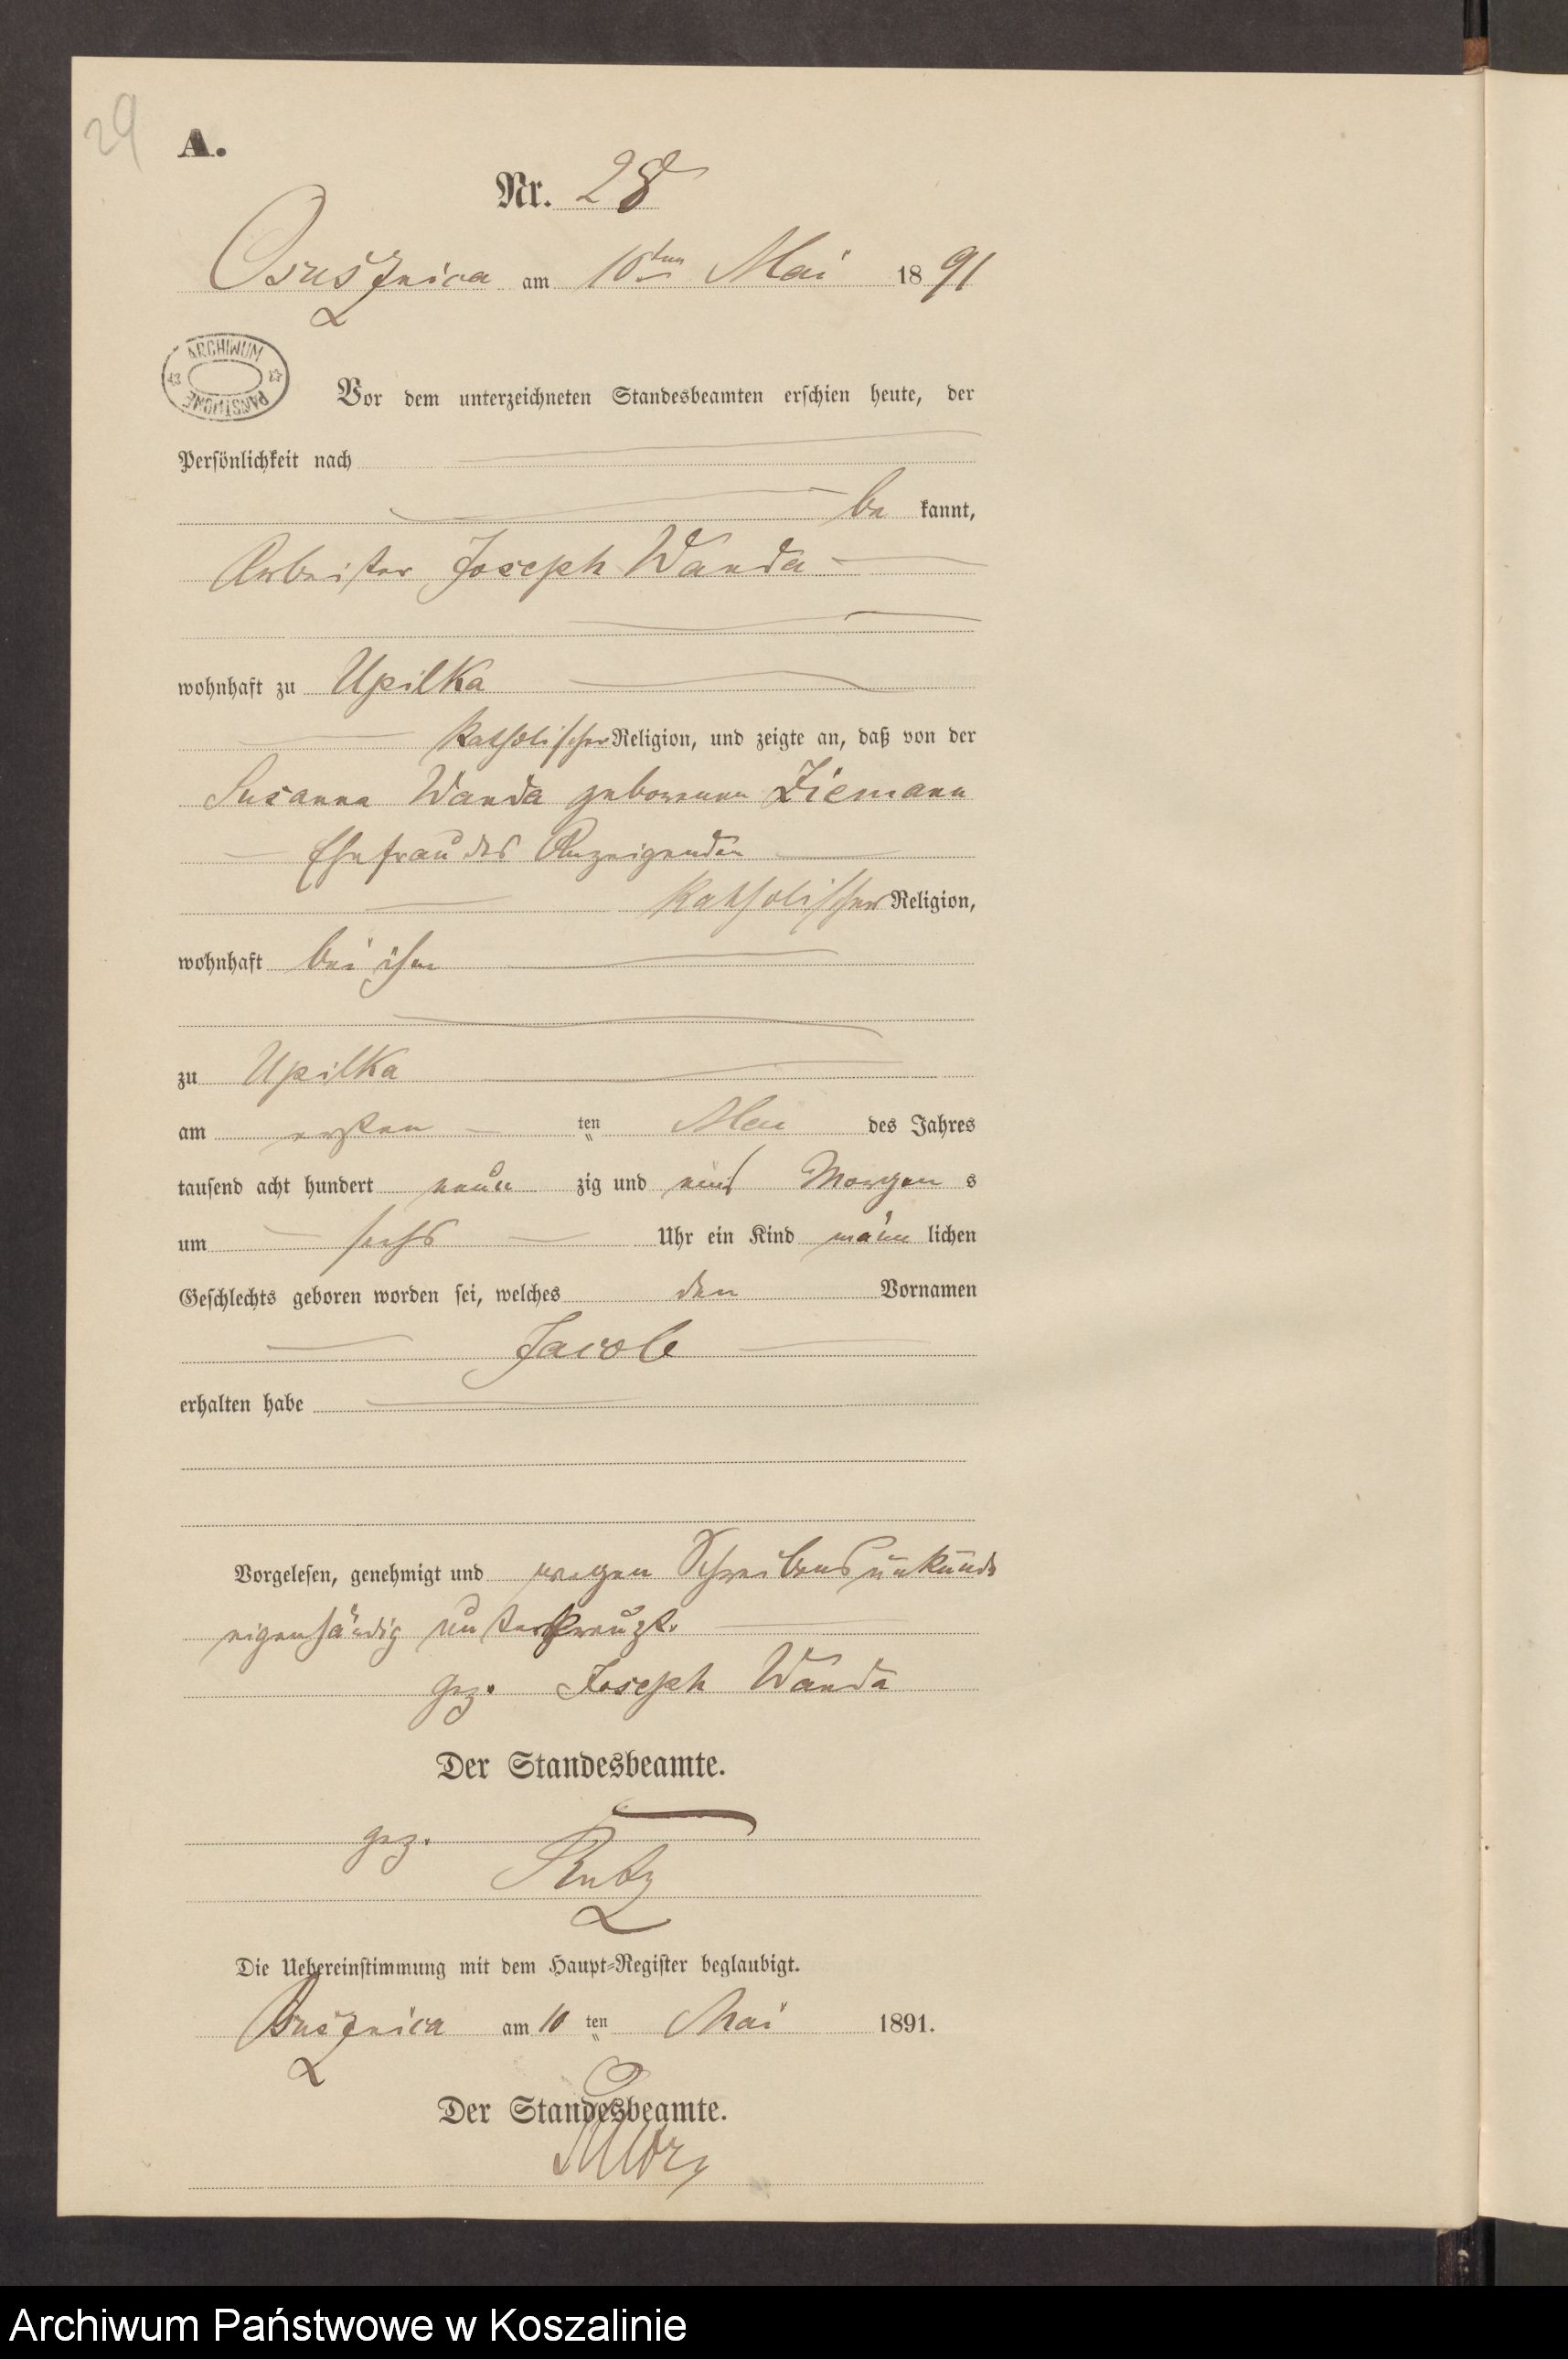 29
A.
Nr. 28
Osusznica am 10ten Mai 1891
ARCHIWUM PAŃSTWOWE
Vor dem unterzeichneten Standesbeamten erschien heute, der
Persönlichkeit nach
be kannt,
Arbeiter Joseph Wanda
wohnhaft zu Upilka
katholischer Religion, und zeigte an, daß von der
Susanna Wanda geborenen Ziemann
Ehefrau des Anzeigenden
katholischer Religion,
wohnhaft bei ihm
zu Upilka
am ersten ten Mai des Jahres
tausend acht hundert neun zig und eins Morgen s
um sechs Uhr ein Kind männ lichen
Geschlechts geboren worden sei, welches den Vornamen
Jacob
erhalten habe
Vorgelesen, genehmigt und wegen Schreibensunkunde
eigenhändig unterkreuzt.
gez. Joseph Wanda
Der Standesbeamte.
gez.
Die Uebereinstimmung mit dem Haupt-Register beglaubigt.
Osusznica am 10 ten Mai 1891.
Der Standesbeamte.
Archiwum Państwowe w Koszalinie